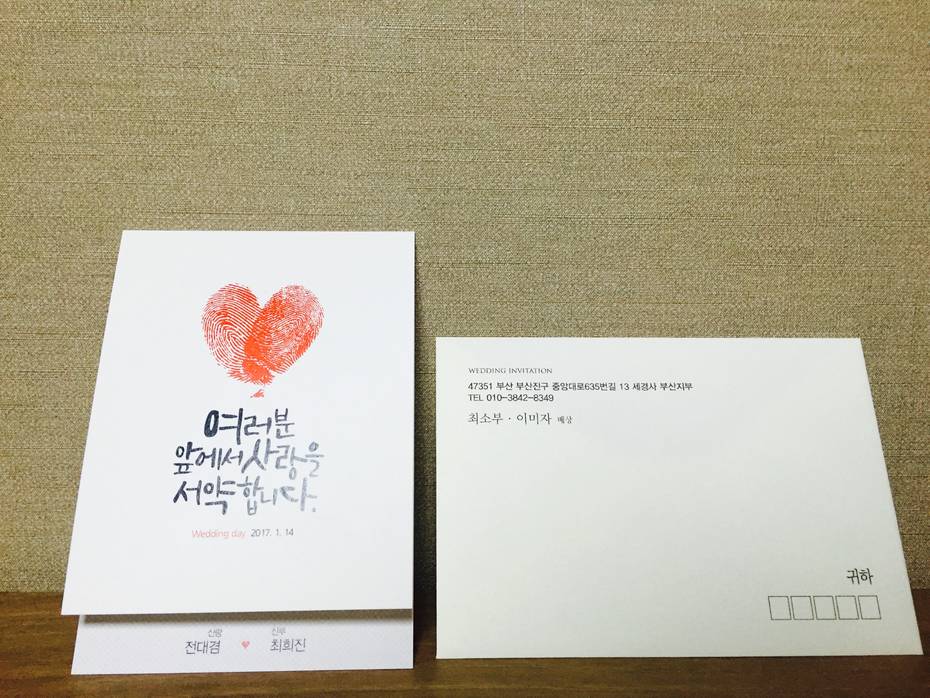 여러분
앞에서 사랑을
서약합니다.
Wedding day 2017. 1. 14
신랑 신부
전대겸 ♥ 최희진
WEDDING INVITATION
47351 부산 부산진구 중앙대로635번길 13 세경사 부산지부
TEL 010-3842-8349
최소부 · 이미자 배상
귀하